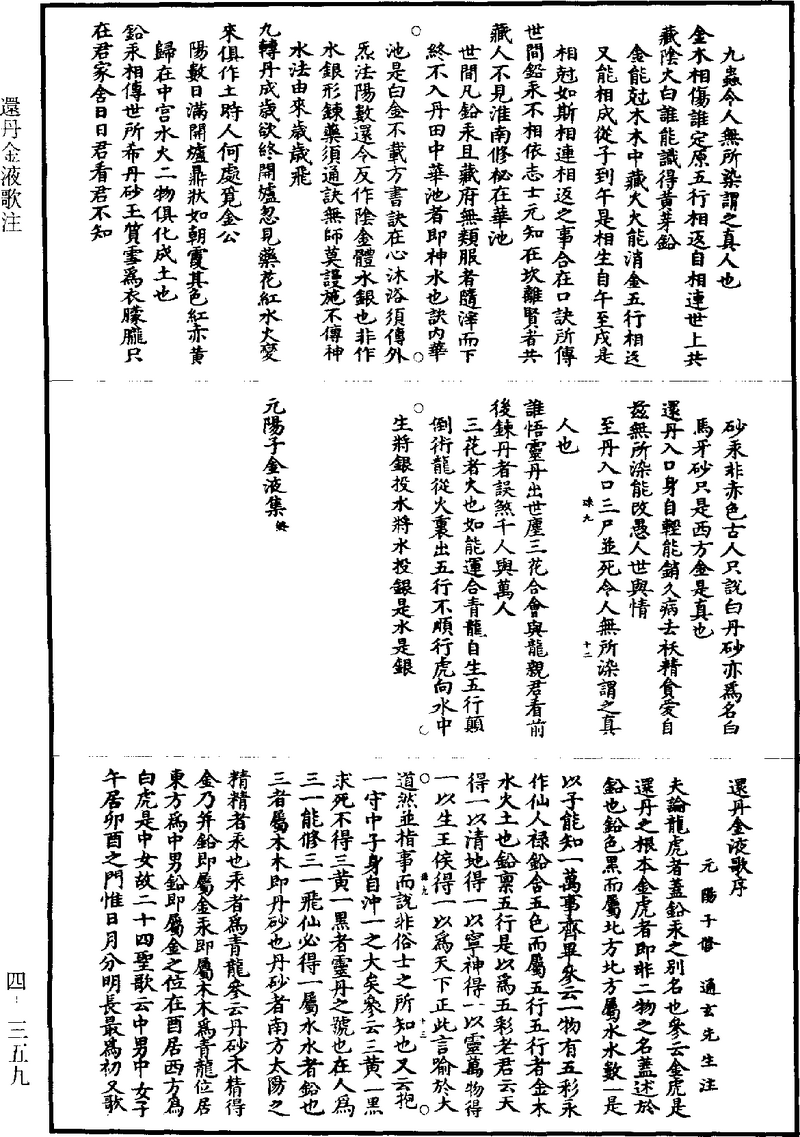 九蟲令人無所染謂之真人也
金木相傷誰定原五行相返自相連世上共
藏陰火白誰能識得黃芽鉛
金能尅木木中藏火火能消金五行相返
又能相成從子到午是相生自午至戌是
相尅如斯相連相返之事合在口訣所傳
世間鉛汞不相依志士元知在坎離賢者共
藏人不見淮南修祕在華池
世間凡鉛汞且藏府無類服者隨滓而下
終不入丹田中華池者即神水也訣內華
池是白金不載方書訣在心沐浴須傳外
炁法陽數還令反作陰金體水銀也非作
水銀形鍊藥須通訣無師莫謾施不傳神
水法由來歲歲飛
九轉丹成歲欲終開爐忽見藥花紅水火變
來俱作土時人何處覓金公
陽數日滿開爐鼎狀如朝霞其色紅亦黃
歸在中宮水火二物俱化成土也
鉛汞相傳世所希丹砂玉質雪為衣朦朧只
在君家舍日日君看君不知
砂汞非赤色古人只說白丹砂亦為名白
馬牙砂只是西方金是真也
還丹入口身自輕能銷久病去祅精貪愛自
茲無所染能改愚人世與情
至丹入口三尸並死令人無所染謂之真
人也
誰悟靈丹出世塵三花合會與龍親君看前
後鍊丹者誤煞千人與萬人
三花者火也如能運合青龍自生五行顛
倒術龍從火裏出五行不順行虎向水中
生將銀投水將水投銀是水是銀
元陽子金液集終
還丹金液歌序
元陽子修　通玄先生注
夫論龍虎者蓋鉛汞之別名也參云金虎是
還丹之根本金虎者即非二物之名蓋述於
鉛也鉛色黑而屬北方北方屬水水數一是
以子能知一萬事齊畢參云一物有五彩永
作仙人祿鉛含五色而屬五行五行者金木
水火土也鉛稟五行是以為五彩老君云天
得一以清地得一以寧神得一以靈萬物得
一以生王侯得一以為天下正此言喻於大
道然並指事而說非俗士之所知也又云抱
一守中子身自沖一之大矣參云三黃一黑
求死不得三黃一黑者靈丹之號也在人為
三一能修三一飛仙必得一屬水水者鉛也
三者屬木木即丹砂也丹砂者南方太陽之
精精者汞也汞者為青龍參云丹砂木精得
金乃并鉛即屬金汞即屬木木為青龍位居
東方為中男鉛即屬金之位在酉居西方為
白虎是中女故二十四聖歌云中男中女子
午居卯酉之門惟日月分明長最為初又歌
還丹金液歌注
四-三五九